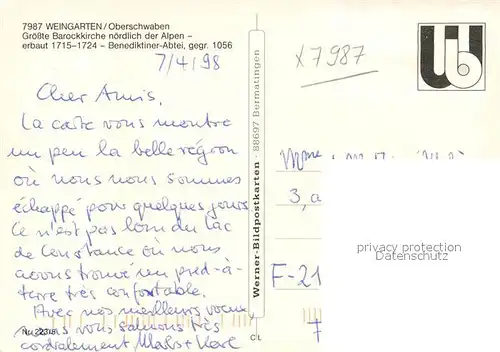 7987 WEINGARTEN/Oberschwaben
Größte Barockkirche nördlich der Alpen –
erbaut 1715–1724 – Benediktiner-Abtei, gegr. 1056
7/4/98
x 7987
Cher Amis,
La carte vous montre
un peu la belle région
où nous nous sommes
échappé pour quelques jours
Ce n'est pas loin du Lac
de Constance où nous
avons trouvé un pied-à-
terre très confortable.
Avec nos meilleurs voeux
nous vous saluons très
cordialement
Werner-Bildpostkarten · 88697 Bermatingen
Mme
3, a
F-21
privacy protection
Datenschutz